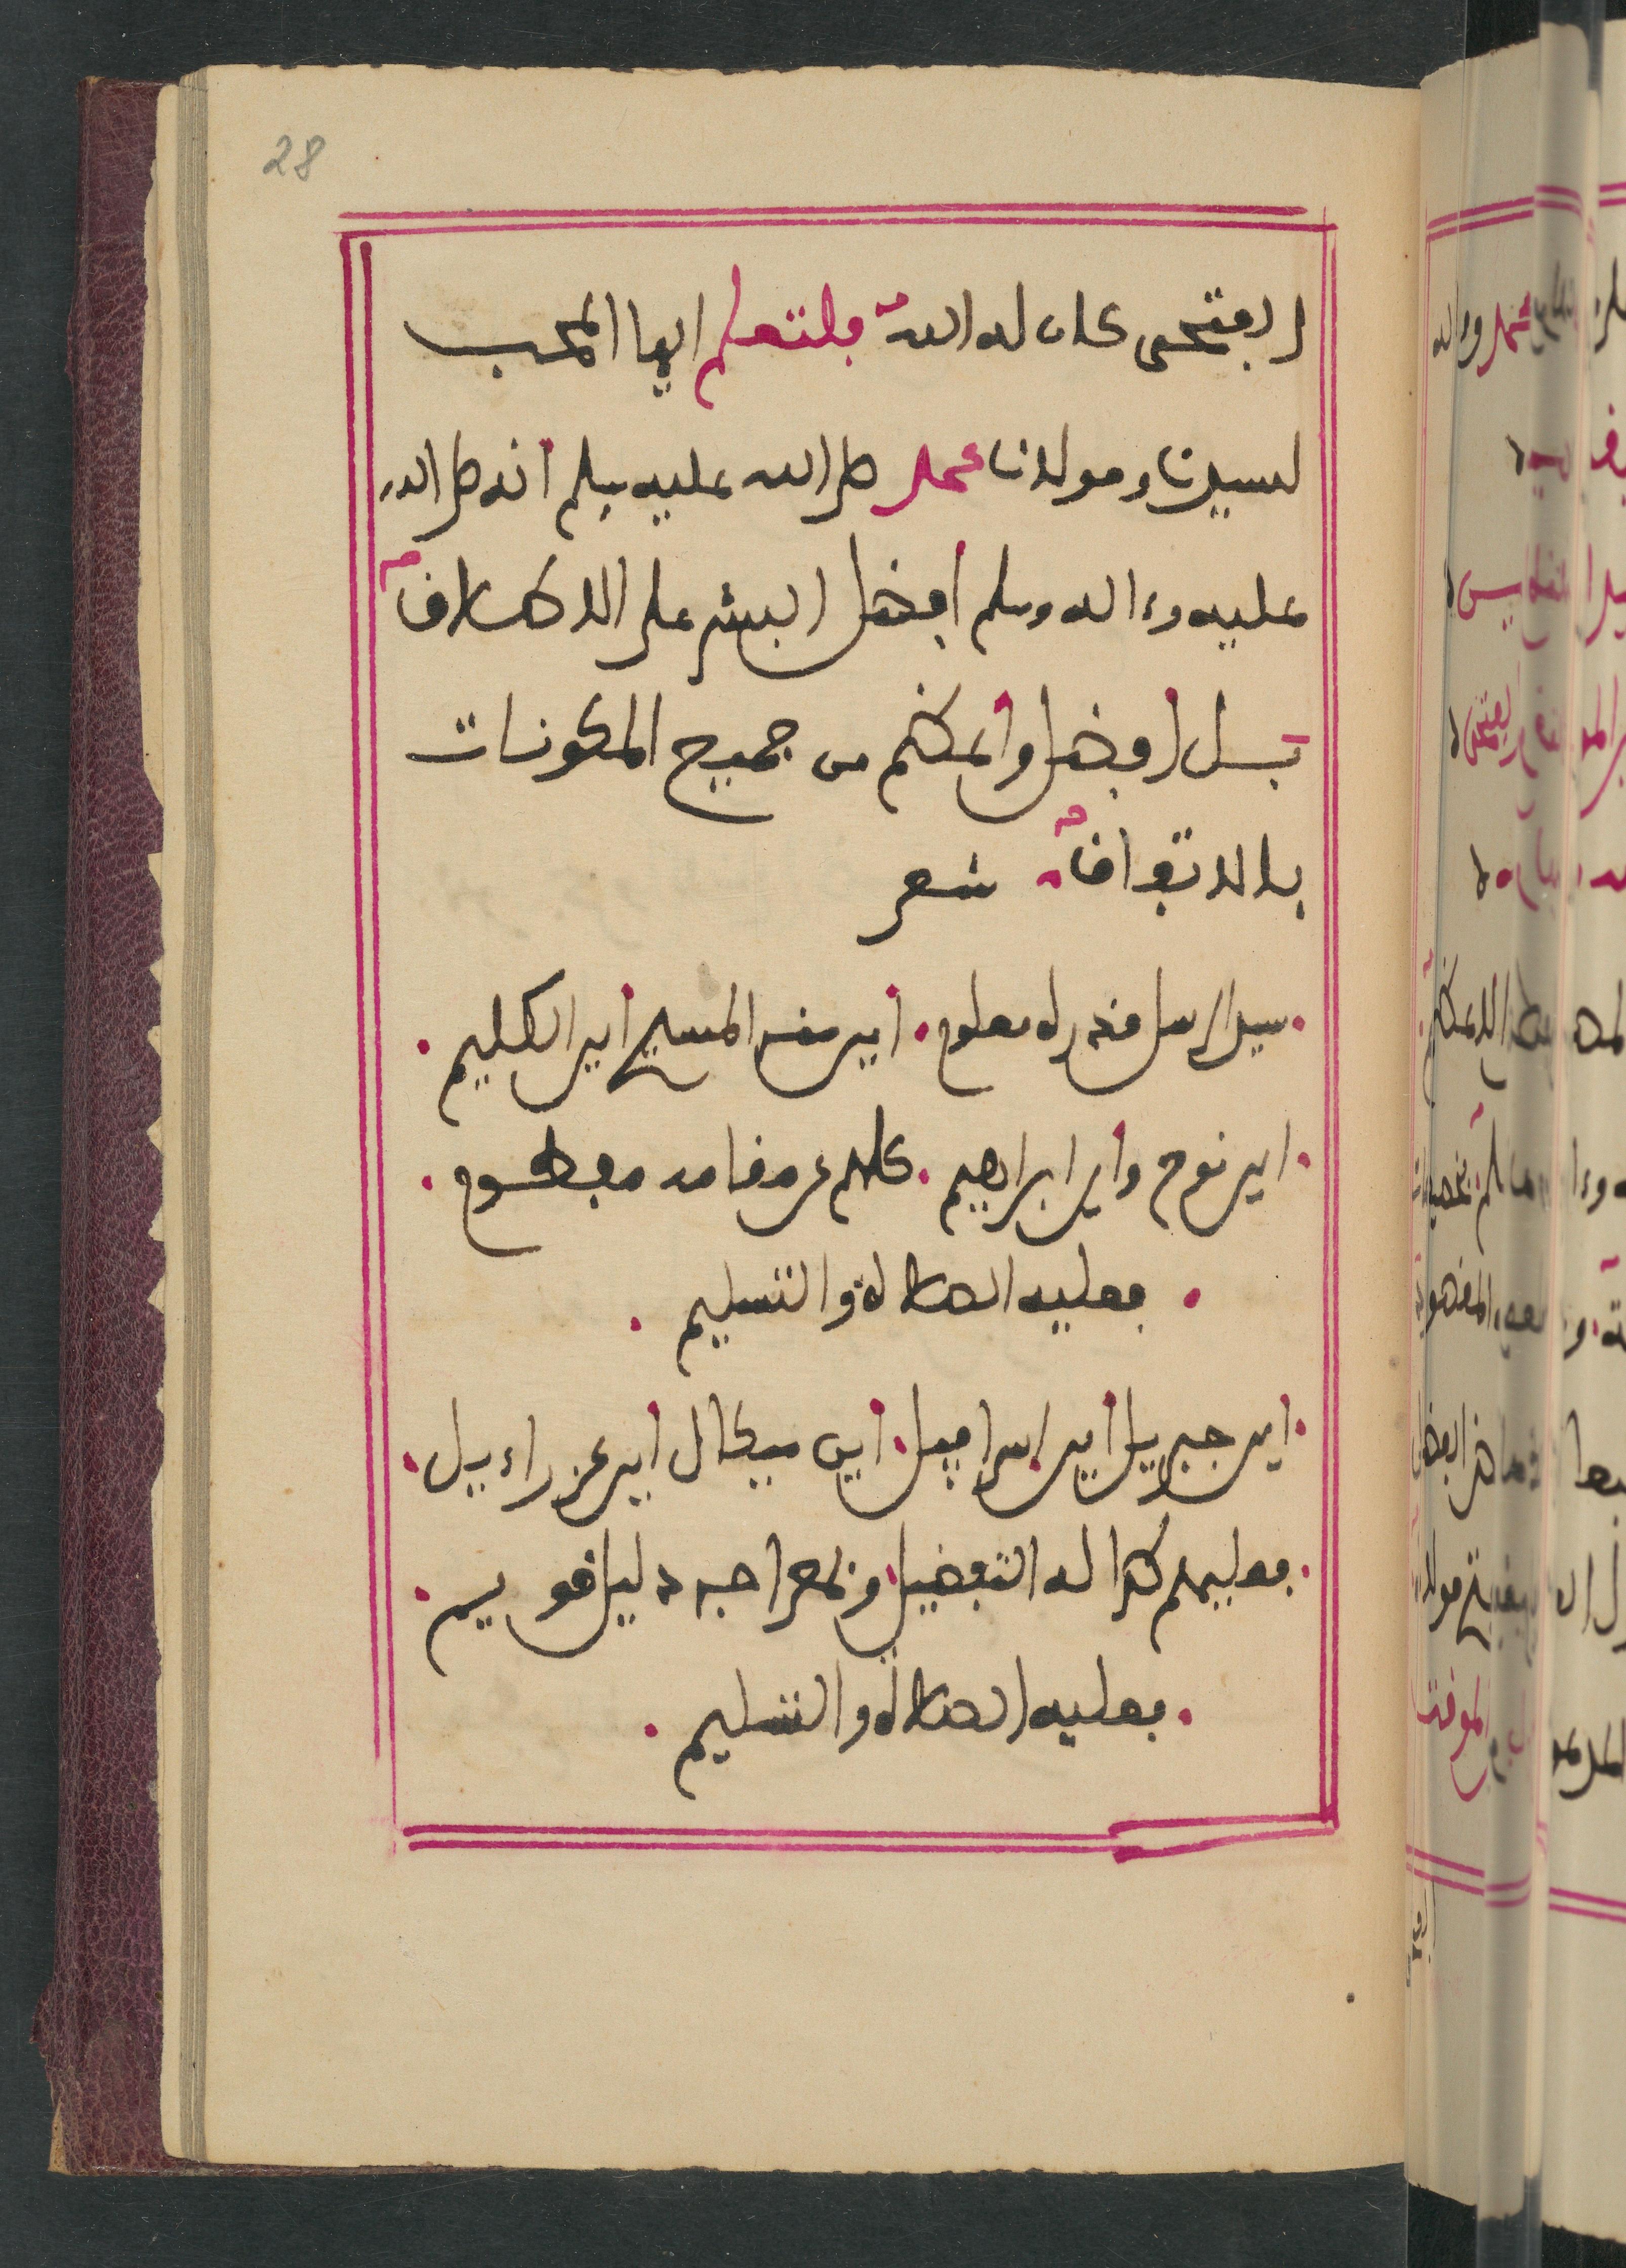 28
الفتحي كان له الله فلتعلم ايها المحب
لسيدنا ومولانا محمد صلى الله عليه وسلم أنه صلى الله
عليه وءاله وسلم أفضل البشر على الاطلاق
بل أفضل وأعظم من جميع المكونات
بالاتفاق شعر
سيد الرسل قدره معلوم . أين منه المسيح أين الكليم .
. اين نوح وأين ابراهيم . كلهم عن مقامه مفطوم .
. فعليه الصلاة والتسليم .
. اين جبريل أين اسرافيل . أين ميكال أين عزراءيل .
. فعليهم كذا له التفضيل . وبمعراجه دليل قويم .
. فعليه الصلاة والتسليم .